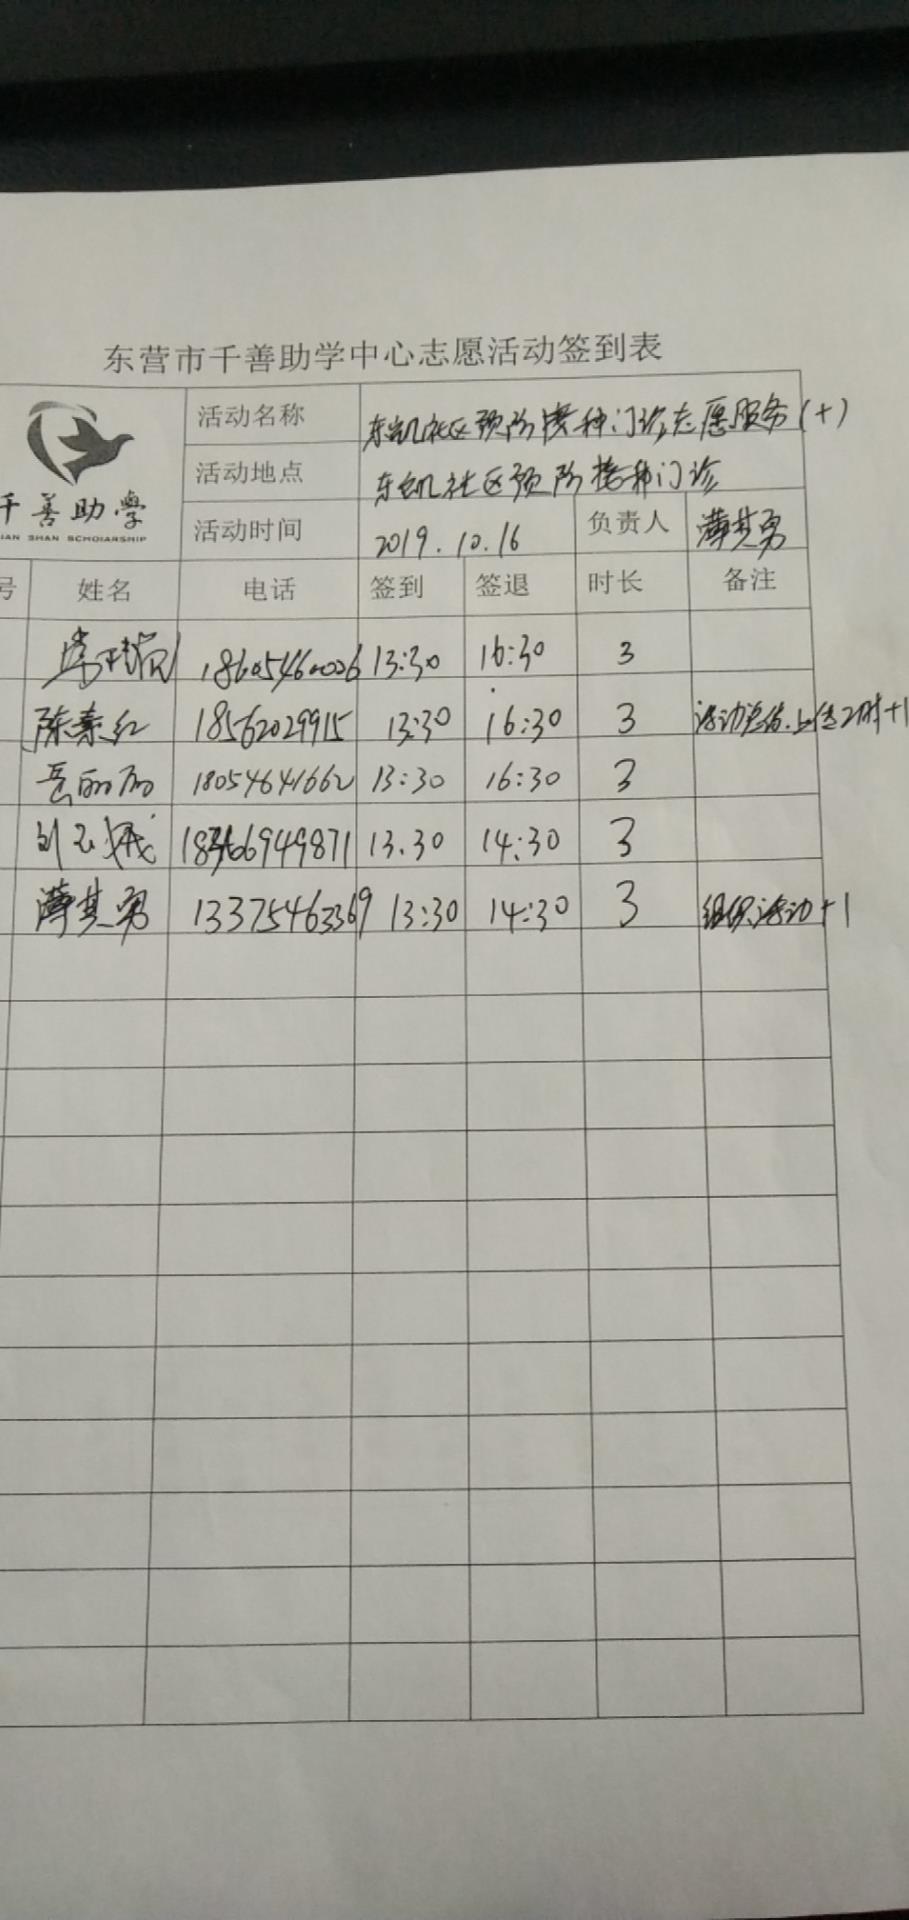 东营市千善助学中心志愿活动签到表
千善助學
IAN SHAN SCHOIARSHIP
活动名称 东凯社区预防接种门诊志愿服务(十)
活动地点 东凯社区预防接种门诊
活动时间 2019.10.16 负责人 薄其勇
号 姓名 电话 签到 签退 时长 备注
13:30 16:30 3
陈素红 18562029915 13:30 16:30 3 +1
18054641662 13:30 16:30 3
刘玉 18366949871 13.30 14:30 3
薄其勇 13375463369 13:30 14:30 3 组织活动+1